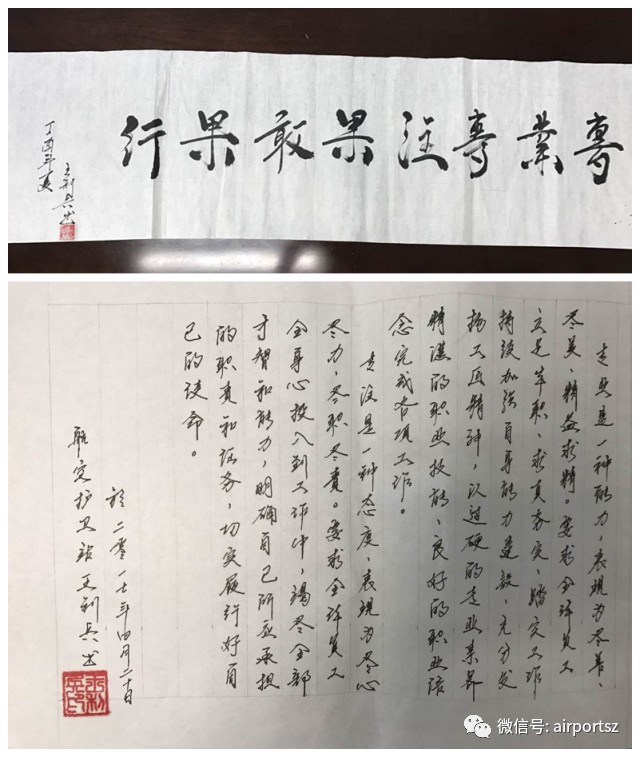 專業專注果敢果行
王利兵书
丁酉年夏
专业是一种能力，表现为尽善、
尽美、精益求精。要求全体员工
立足本职、求真务实、踏实工作
持续加强自身能力建设，充分发
扬工匠精神，以过硬的专业素养
精湛的职业技能、良好的职业信
念完成各项工作。
专注是一种态度，表现为尽心
尽力，尽职尽责。要求全体员工
全身心投入到工作中，竭尽全部
才智和能力，明确自己所应承担
的职责和任务，切实履行好自
己的使命。
于二零一七年四月二十日
航空护卫站王利兵书
微信号: airportsz